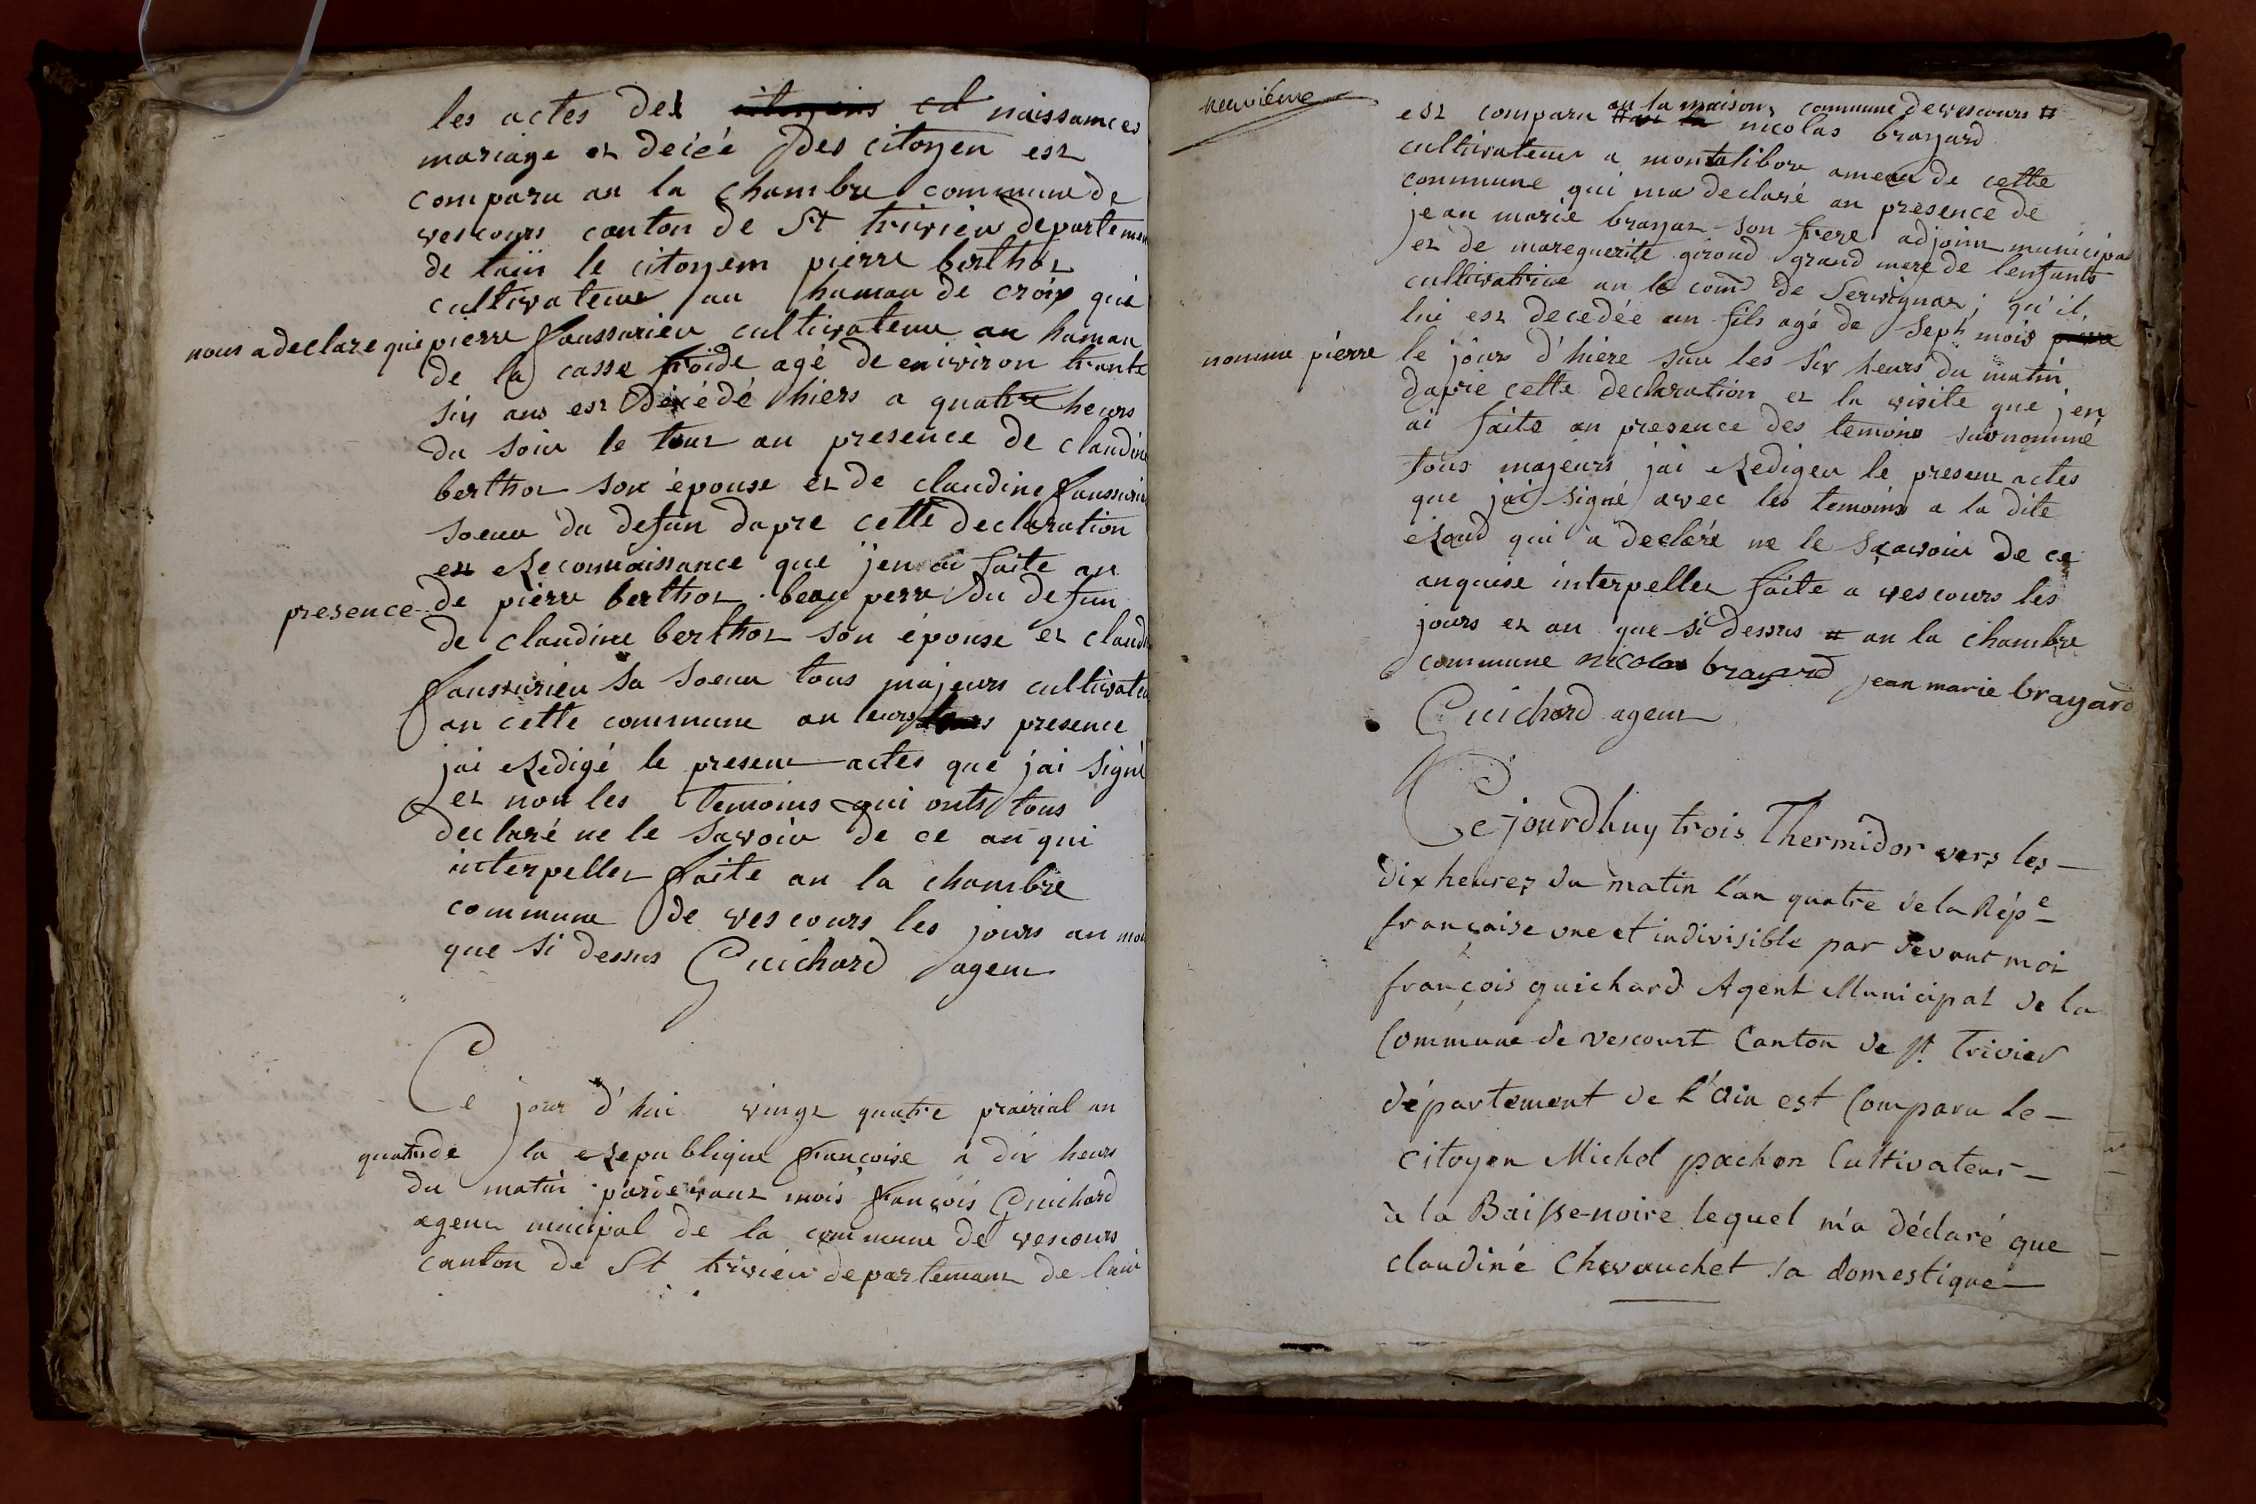 les actes des citoyens et naissances
mariage et décée des citoyen est
comparu an la chambre commune de
vescours canton de St trivier departemen
de lain le citoyem pierre berthot
cultivateur au haman de croix qui
nous a declare que pierre faussurieu cultivateur au haman
de la casse froide agé de eniviron trante
six ans est décédé hiers a quatre heurs
du soir le tout an presence de claudine
berthot son épouse et de claudine faussurieu
soeur du defun dapre cette declaration
et reconnaissance que jen ai faite an
presence de pierre berthot beau perre du defun
de claudine berthot son épouse et claudi
faussurieu sa soeur tous majeurs cultivateu
an cette commune an leurs presence
jai redigé le presene actes que jai signé
et non les temoins qui onts tous
declaré ne le savoir de ce an qui
interpeller faite an la chambre
commune de vescours les jours an moi
que si dessus Guichard agent
Ce jour d'hui vingt quatre prairial an
quatre de la republique françoise a dix heurs
du matin pardevant mois françois Guichard
agent municipal de la commune de vescours
canton de St trivier departemant de lain
neuvième
est comparu an la maison commune de vescours # nicolas brayard
cultivateur a montalibore ameau de cette
commune qui ma declaré an presence de
jean marie brayar son frere adjoint municipal
et de mareguerite giroud grand mere de lenfants
cultivatrice an la comd de Servignat; qu'il
lui est decedée un fils agé de Sept mois
nomme pierre le jour d'hière sur les six heurs du matin
daprie cette declaration et la visite que jen
ai faite an presence des temoins surnommé
tous majeurs jai redigeu le presene actes
que jai signé avec les temoins a la dite
qui a declaré ne le sçavoir de ce
anquise interpeller faite a vescours les
jours et an que si dessus # an la chambre
commune nicolas brayard jean marie brayard
Guichard agent
Ce jourdhuy trois Thermidor vers les
dix heures du matin l'an quatre de la Répe
françoise une et indivisible par devant moi
françois guichard Agent Municipal de la
Commune de vescourt Canton de st Trivier
département de l'Ain est Comparu le
citoyen Michel pachon Cultivateur
à la Baisse-noire lequel m'a déclaré que
claudine Chevauchet sa domestique